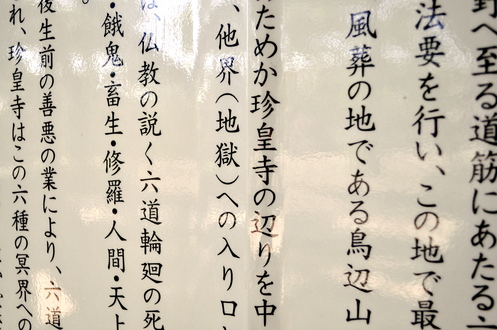 野へ至る道筋にあたる
法要を行い、この地で最
風葬の地である鳥辺山
ためか珍皇寺の辺りを中
、他界(地獄)への入り口
は、仏教の説く六道輪廻の死
・餓鬼・畜生・修羅・人間・天上
後生前の善悪の業により、六道
れ、珍皇寺はこの六種の冥界への